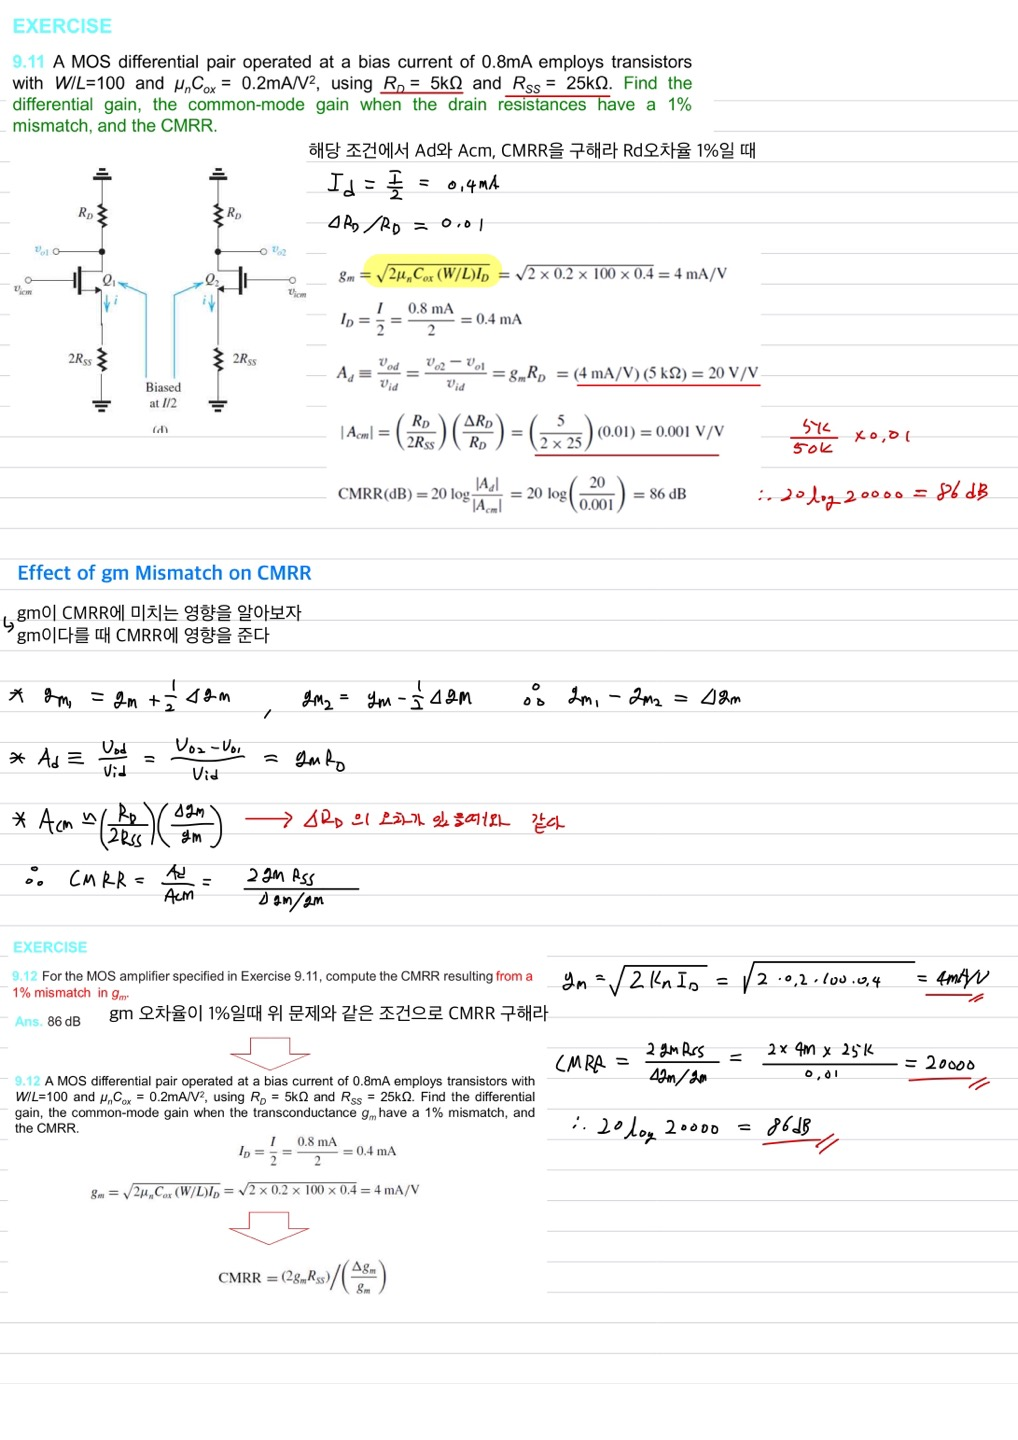 EXERCISE
9.11 A MOS differential pair operated at a bias current of 0.8mA employs transistors
with W/L=100 and μnCox = 0.2mA/V², using RD = 5kΩ and RSS = 25kΩ. Find the
differential gain, the common-mode gain when the drain resistances have a 1%
mismatch, and the CMRR.
해당 조건에서 Ad와 Acm, CMRR을 구해라 Rd오차율 1%일 때
Id = I/2 = 0,4mA
ΔRD/RD = 0.01
RD RD
vo1 vo2
Q1 Q2
vicm vicm
i i
2RSS 2RSS
Biased
at I/2
(d)
gm = √(2μnCox(W/L)ID) = √(2 × 0.2 × 100 × 0.4) = 4 mA/V
ID = I/2 = 0.8 mA/2 = 0.4 mA
Ad ≡ vod/vid = (vo2 − vo1)/vid = gmRD = (4 mA/V)(5 kΩ) = 20 V/V
|Acm| = (RD/2RSS)(ΔRD/RD) = (5/(2 × 25))(0.01) = 0.001 V/V
5k/50k × 0,01
CMRR(dB) = 20 log |Ad|/|Acm| = 20 log(20/0.001) = 86 dB
∴ 20 log 20000 = 86 dB
Effect of gm Mismatch on CMRR
gm이 CMRR에 미치는 영향을 알아보자
gm이다를 때 CMRR에 영향을 준다
* gm1 = gm + 1/2 Δgm , gm2 = gm − 1/2 Δgm ∴ gm1 − gm2 = Δgm
* Ad ≡ Vod/Vid = (Vo2 − Vo1)/Vid = gmRD
* Acm ≃ (RD/2RSS)(Δgm/gm) → ΔRD의 오차가 있을때와 같다
∴ CMRR = Ad/Acm = 2gmRSS/(Δgm/gm)
EXERCISE
9.12 For the MOS amplifier specified in Exercise 9.11, compute the CMRR resulting from a
1% mismatch in gm.
Ans. 86 dB
gm 오차율이 1%일때 위 문제와 같은 조건으로 CMRR 구해라
gm = √(2 Kn ID) = √(2 · 0,2 · 100 · 0,4) = 4mA/V
CMRR = 2gmRSS/(Δgm/gm) = (2 × 4m × 25k)/0,01 = 20000
∴ 20 log 20000 = 86dB
9.12 A MOS differential pair operated at a bias current of 0.8mA employs transistors with
W/L=100 and μnCox = 0.2mA/V², using RD = 5kΩ and RSS = 25kΩ. Find the differential
gain, the common-mode gain when the transconductance gm have a 1% mismatch, and
the CMRR.
ID = I/2 = 0.8 mA/2 = 0.4 mA
gm = √(2μnCox(W/L)ID) = √(2 × 0.2 × 100 × 0.4) = 4 mA/V
CMRR = (2gmRSS)/(Δgm/gm)